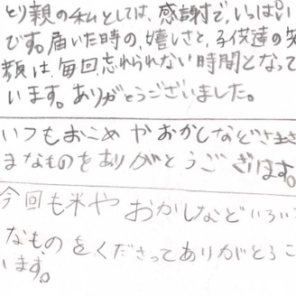 とり親の私としては、感謝で、いっぱい
です。届いた時の、嬉しさと、子供達の笑
顔は、毎回、忘れられない時間となって
います。ありがとうございました。
いつもおこめやおかしなどさまざ
まなものをありがとうございます。
今回も米やおかしなどいろい
なものをくださってありがとうご
います。